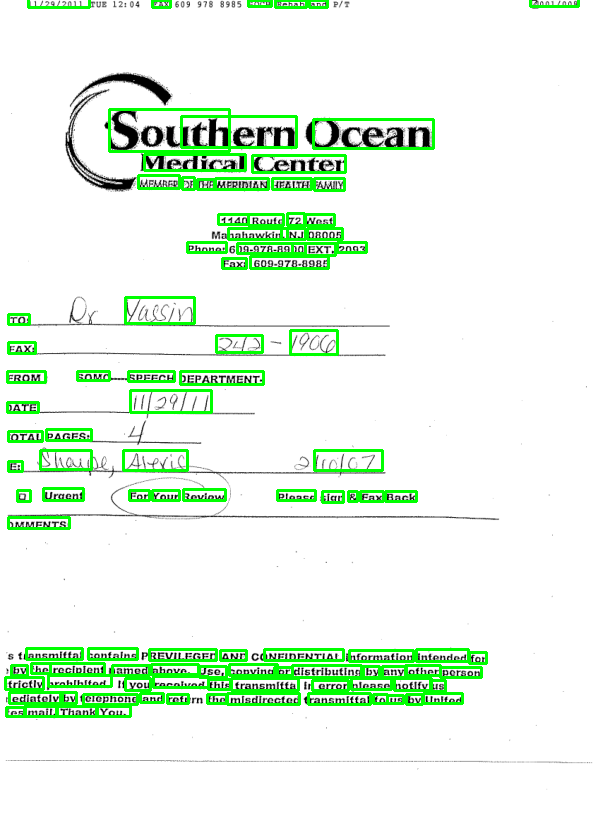 1/29/2011 TUE 12:04 FAX 609 978 8985 SOCH Rehab and P/T 001/008
Southern Ocean
Medical Center
MEMBER OF THE MERIDIAN HEALTH FAMILY
1140 Route 72 West
Manahawkin, NJ 08005
Phone: 609-978-8900 EXT. 2093
Fax: 609-978-8985
TO: Dr Yassin
FAX: 242-1906
FROM SOMC-----SPEECH DEPARTMENT.
DATE 11/29/11
OTAL PAGES: 4
E: Sharpe, Alexis 2/10/07
Urgent For Your Review Please sign & Fax Back
OMMENTS
s transmittal contains PREVILEGED AND CONFIDENTIAL information intended for
by the recipient named above. Use, copying or distributing by any other person
trictly prohibited. If you received this transmittal in error please notify us
ediately by telephone and return the misdirected transmittal to us by United
es mail. Thank You.